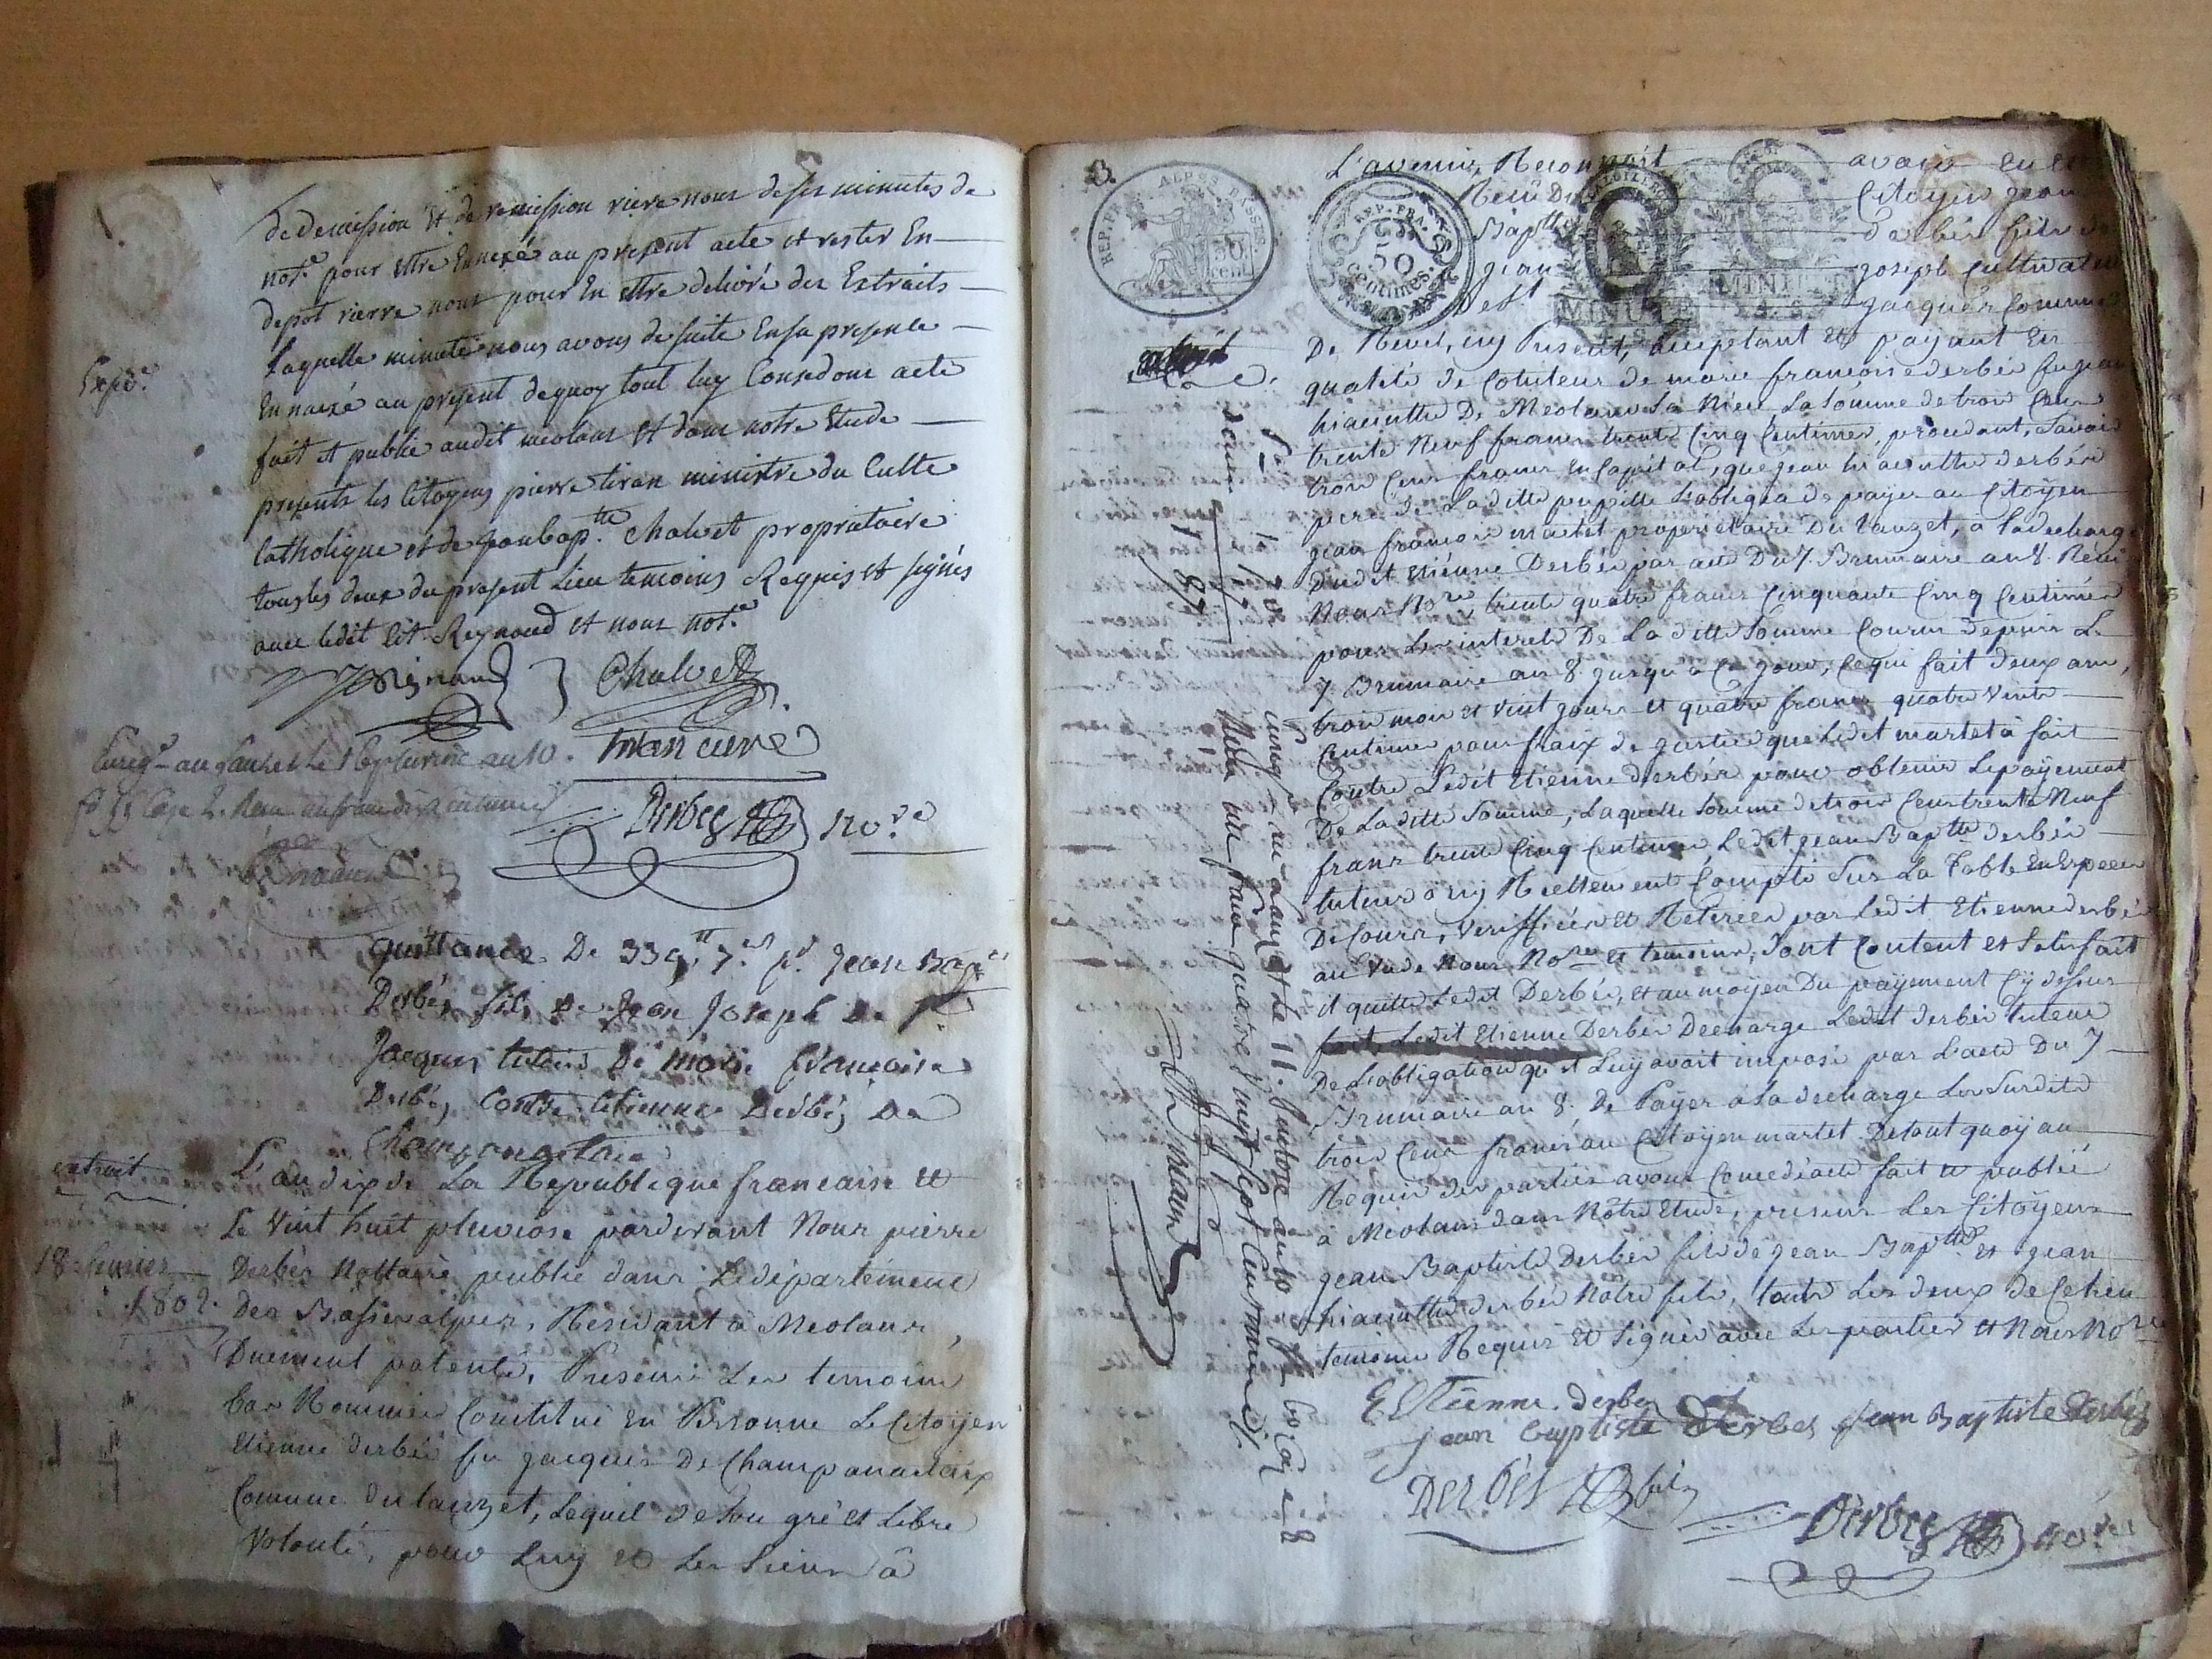 de demission et de remission rière nous de ses minutes de
not.e pour ettre Ennexé au present acte et rester En
depot rierre nous pour En ettre delivré des Extraits
laquelle minute nous avons de suite En sa presence
Ennexé au present de quoy tout luy Concedons acte
fait et publié audit meolans et dans notre Etude
presents les Citoyens pierre tiran ministre du Culte
Catholique et de jean bap.tte Chalvet propriataire
tous les deux du present Lieu temoins Requis et signés
avec ledit Cit. Reynaud et nous not.e
Expé.e
Chalvet
tiran curé
Derbes No.re
quittance De 339.tt 7.s p.r Jean Bap.te
Derbés fils de Jean Joseph de feu
Jacques, tuteur De marie francoise
Derbés, Contre Etienne Derbés De
Champanastais
extrait
18 fevrier
1802.
L'an dix de La Republique francaise et
Le Vint huit pluviose pardevant Nous pierre
Derbés Nottaire public dans Le departement
Des Basses alpes, Residant a Meolans,
Duement patenté, Presens Les temoins
bas Nommés Constitué En Personne Le Citoyen
Etienne derbés fu jacques De Champanastais
Comune du lauzet, Lequel de son gré et Libre
Volonté, pour Luy et Les Siens â
REP. FRA. ALPES BASSES
50 cent.
REP. FRA.
50 Centimes.
MINUTE
MINUTE
L'avenir, Reconnoit avoir Eu et
Receu Du Citoyen jean
Bap.tte derbés fils de
jean joseph Cultivateur
jacques Commune
De Revel, icy Present, acceptant et payant En
qualité de Cotuteur de marie francoise derbés fu jean
hiacinthe De Meolans Sa Niece La Somme de trois Cens
trente Neuf francs trente Cinq Centimes, procedant, Savoir
trois Cens francs En Capital, que jean hiacinthe derbés
pere de Laditte pupille s'obligea de payer au Citoyen
jean francois martel proprietaire Du lauzet, a la decharge
dudit Etienne Derbés par acte Du 7. Brumaire an 8. Receu
Nous No.re, trente quatre francs Cinquante Cinq Centimes
pour Les interets De La ditte Somme Courus depuis Le
7 Brumaire an 8 jusqu'a Ce jour, Ce qui fait deux ans,
trois mois et vint jours et quatre francs quatre Vints
Centimes pour fraix de justice que Ledit martel à fait
Contre Ledit Etienne derbés pour obtenir Le payement
De Laditte Somme, Laquelle Somme de trois Cens trente Neuf
francs trente Cinq Centimes Ledit jean Bap.tte derbés
tuteur à icy Réellement Compté Sur La Table En Especes
De Cours, Veriffiées et Retirées par Ledit Etienne derbés
au Vu de Nous No.re et temoins, Dont Content et Satisfait
il quitte Ledit Derbés, et au moyen Du payement Cy dessus
fait Ledit Etienne Derbés Decharge Ledit derbés tuteur
De L'obligation qu'il Luy avoit imposé par L'acte Du 7
Brumaire an 8. De Payer a la decharge Les Susdits
trois Cens francs au Citoyen martel. De tout quoy au
Requis des parties avons Concedé acte fait et publié
à Meolans dans Nôtre Etude, presens Les Citoyens
jean Baptiste Derbés fils de jean Bap.tte et jean
hiacinthe derbés Nôtre fils, touts Les deux de Ce lieu
temoins Requis et Signés avec Les parties et Nous No.re
Enreg.é au Lauzet le 11. ventose an 10
Reçu un franc quatre vingt sept Centimes
EStienne. derbes
jean baptiste derbes Jean Baptiste derbés
Derbés fils
Derbes No.re